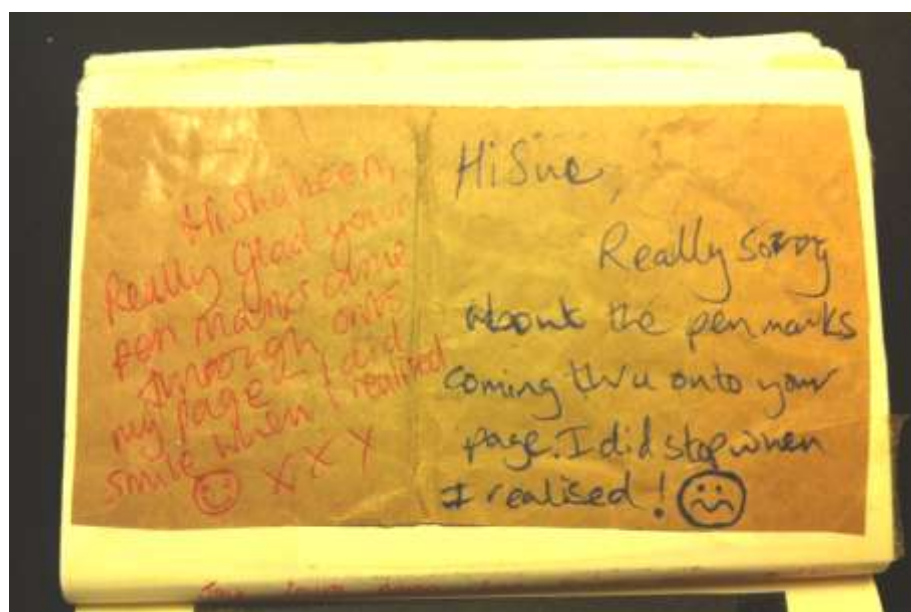 Hi Shaheen,
Really Glad your
pen marks came
through onto
my page – I did
smile when I realised
X X X
Hi Sue,
Really Sorry
About the pen marks
coming thru onto your
page. I did stop when
I realised!